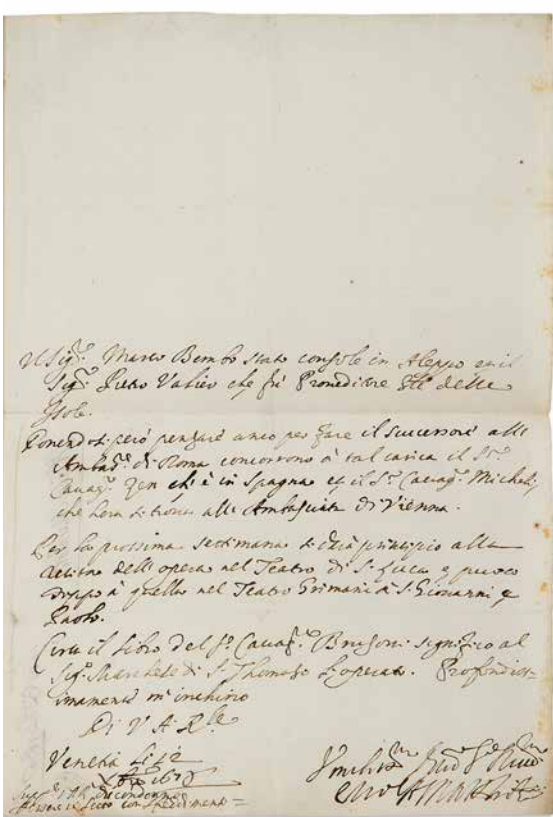 Il Sig.r Marco Bembo stato console in Aleppo et il
Sig.r Pietro Valier che fù Proveditore delle
Isole.
però pensare anco per fare il successore alle
Ambas.ta di Roma concorrono à tal carica il S.r
Cavag.r Zen ch'è in Spagna et il S.r Cavag.r Michel,
che hora si trova alle Ambasciata di Vienna.
Per la prossima settimana si darà principio alla
recita dell'opera nel Teatro di S. Luca e puoco
doppo à quello nel Teatro Grimani à S. Giovanni e
Paolo.
Circa il libro del S.r Cavag.r Brusoni significo al
Sig.r Marchese di S. Thomaso l'operato. Profondiss-
imamente m'inchino
Di V. A. R.le
Venetia li